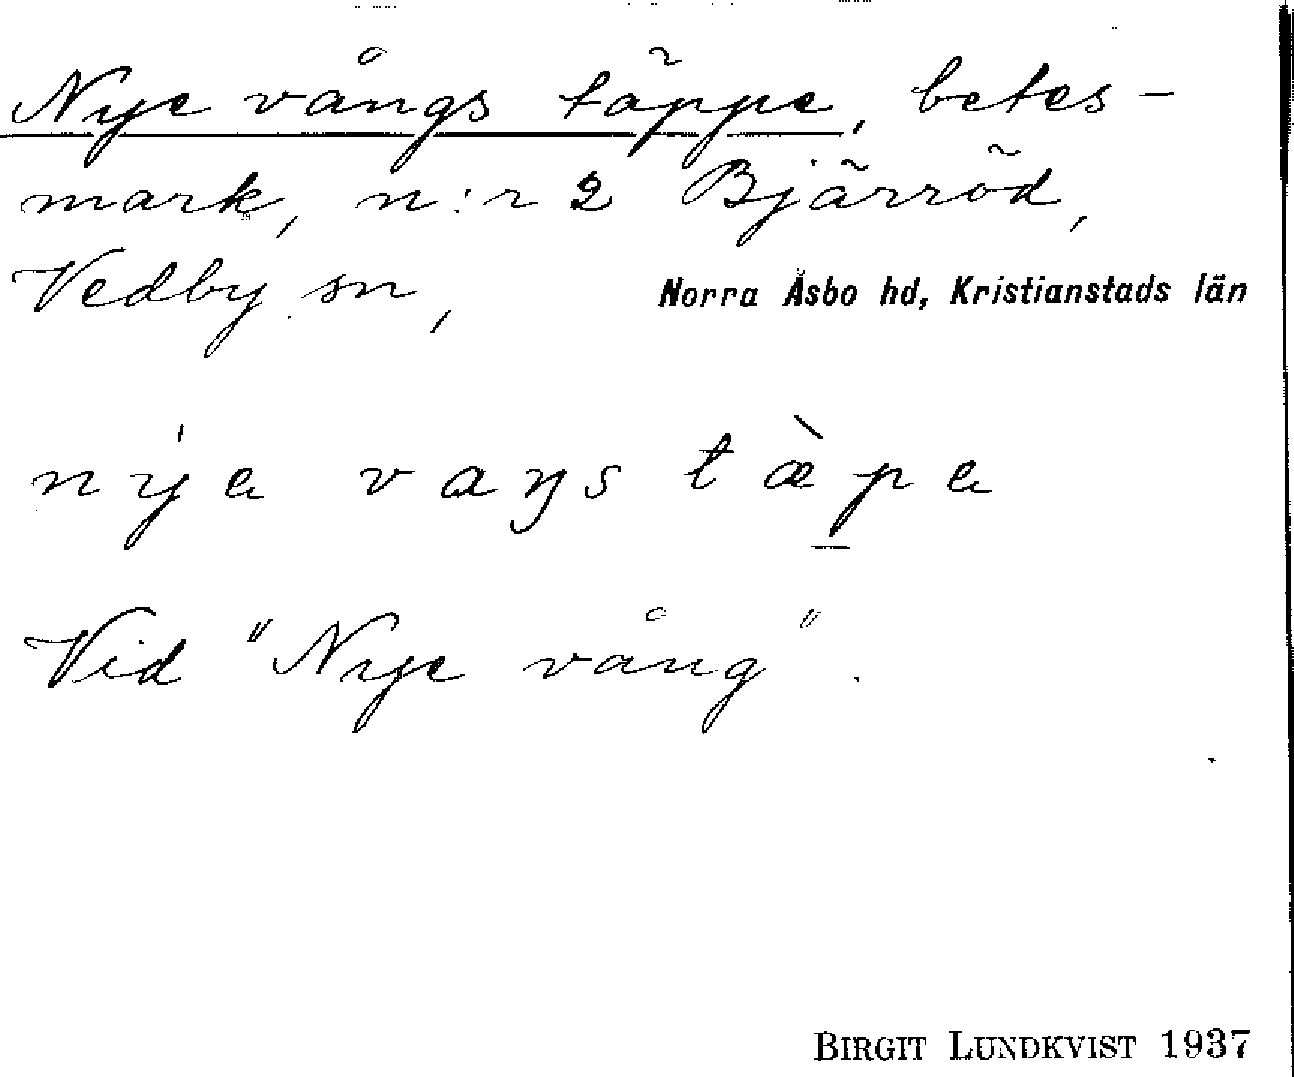 Nye vångs täppe, betes-
mark, n:r 2 Bjärröd,
Vedby sn, Norra Åsbo hd, Kristianstads län
nýa vaŋs tæ̀pa
Vid "Nye vång".
BIRGIT LUNDKVIST 1937